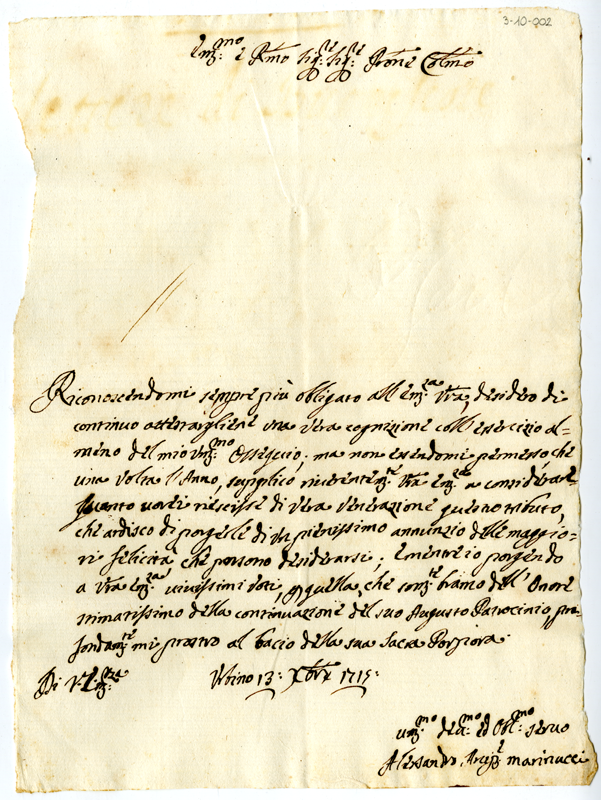 3-10-002
Em:mo e Rmo Sig:re Sig:re Prone Colmo
Riconoscendomi sempre più obligato all'Em:za Vra, desidero di
continuo attestargliene una vera cognizione coll'essercizio al=
meno del mio um:mo Ossequio; ma non essendomi permesso che
una volta l'Anno, supplico riverentem:te Vra Em:za a considerare
quanto vorei riescisse di vera venerazione questo tributo,
che ardisco di porgerle di un pienissimo annunzio delle maggio=
ri felicità che possono desiderarsi; E mentre io porgendo
a Vra Em:za vivissimi voti, p quella, che som:te bramo dell'Onore
stimatissimo della continuazione del suo Augusto Patrocinio, pro=
fondam:te mi prostro al bacio della sua Sacra Porpora.
Di V:ra Em:za Urbino 13: Xbre 1715:
um:mo dev:mo ed Obl:mo servo
Alessandro Marinucci